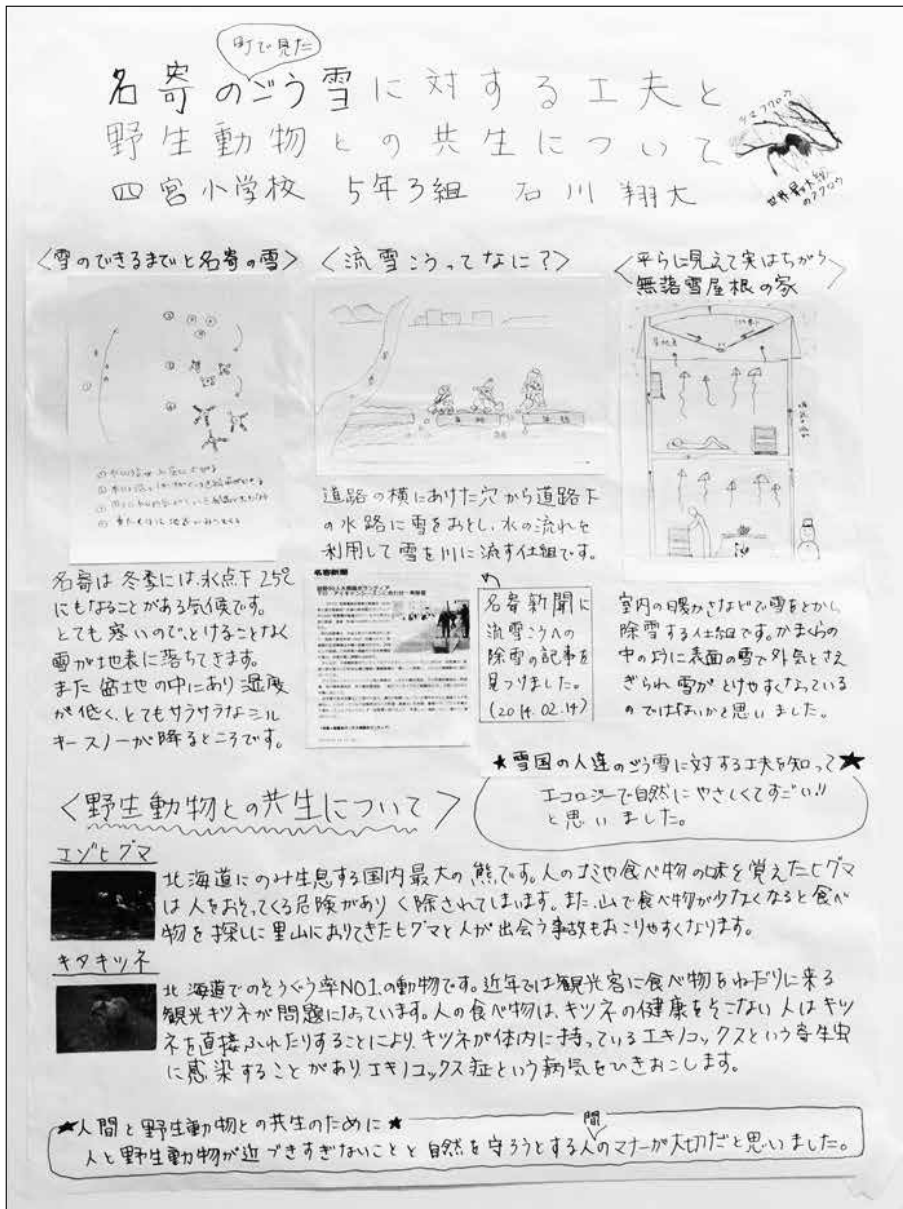 町で見た
名寄のごう雪に対する工夫と
野生動物との共生について
四宮小学校 5年3組 石川翔大
シマフクロウ
世界最大級
のフクロウ
〈雪のできるまでと名寄の雪〉
名寄は冬季には、氷点下25℃
にもなることがある気候です。
とても寒いので、とけることなく
雪が地表に落ちてきます。
また盆地の中にあり湿度
が低く、とてもサラサラなシル
キースノーが降るところです。
〈流雪こうってなに？〉
道路の横にあけた穴から道路下
の水路に雪をおとし、水の流れを
利用して雪を川に流す仕組です。
名寄新聞
名寄新聞に
流雪こうへの
除雪の記事を
見つけました。
(2014.02.14)
〈平らに見えて実はちがう
無落雪屋根の家〉
室内の暖かさなどで雪をとかし
除雪する仕組です。かまくらの
中のように表面の雪で外気とさえ
ぎられ雪がとけやすくなっている
のではないかと思いました。
★雪国の人達のごう雪に対する工夫を知って★
エコロジーで自然にやさしくてすごい!!
と思いました。
〈野生動物との共生について〉
エゾヒグマ
北海道にのみ生息する国内最大の熊です。人のゴミや食べ物の味を覚えたヒグマ
は人をおそってくる危険がありく除されてしまいます。また、山で食べ物が少なくなると食べ
物を探しに里山におりてきたヒグマと人が出会う事故もおこりやすくなります。
キタキツネ
北海道でのそうぐう率NO1.の動物です。近年では観光客に食べ物をねだりに来る
観光キツネが問題になっています。人の食べ物は、キツネの健康をそこない人はキツ
ネを直接ふれたりすることにより、キツネが体内に持っているエキノコックスという寄生虫
に感染することがありエキノコックス症という病気をひきおこします。
★人間と野生動物との共生のために★
人と野生動物が近づきすぎないことと自然を守ろうとする人間のマナーが大切だと思いました。